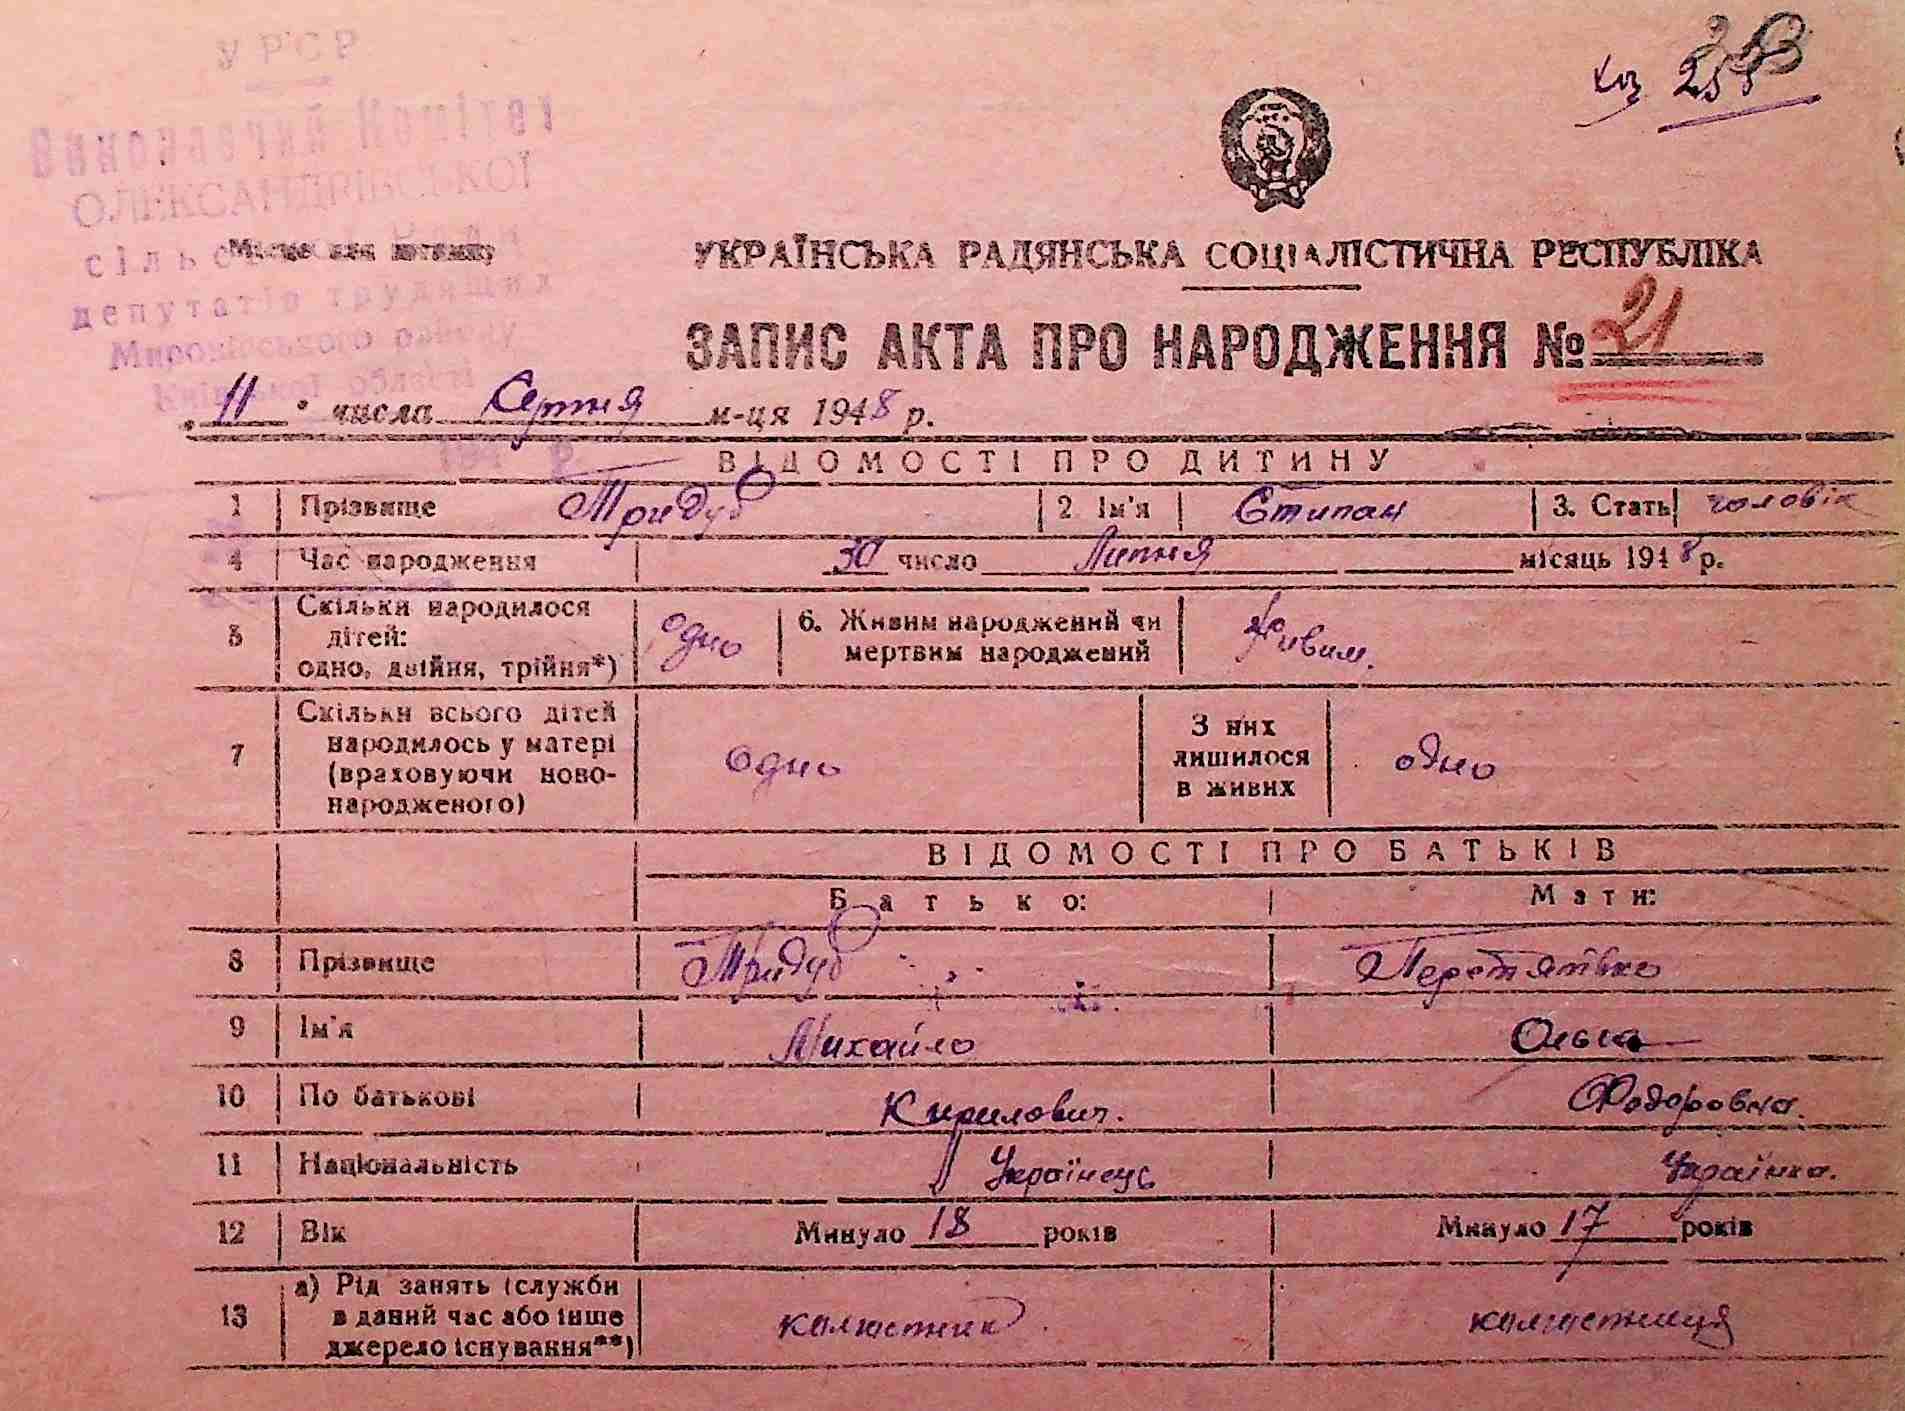 УРСР
Виконавчий Комітет
ОЛЕКСАНДРІВСЬКОЇ
сільської Ради
депутатів трудящих
Миронівського району
Київської області
Місце для штампу
УКРАЇНСЬКА РАДЯНСЬКА СОЦІАЛІСТИЧНА РЕСПУБЛІКА
ЗАПИС АКТА ПРО НАРОДЖЕННЯ № 21
11 числа Серпня м-ця 1948 р.
ВІДОМОСТІ ПРО ДИТИНУ
1 Прізвище Тридуб 2 Ім'я Стипан 3. Стать чоловік
4 Час народження 30 число Липня місяць 1948 р.
Скільки народилося
5 дітей: одно 6. Живим народжений чи Живим.
одно, двійня, трійня*) мертвим народжений
Скільки всього дітей З них
7 народилось у матері одно лишилося одно
(враховуючи ново- в живих
народженого)
ВІДОМОСТІ ПРО БАТЬКІВ
Батько: Мати:
8 Прізвище Тридуб Перетятько
9 Ім'я Михайло Ольга
10 По батькові Кирилович. Федоровна.
11 Національність Українець Українка.
12 Вік Минуло 18 років Минуло 17 років
а) Рід занять (служби
13 в даний час або інше колгостник колгостниця
джерело існування**)